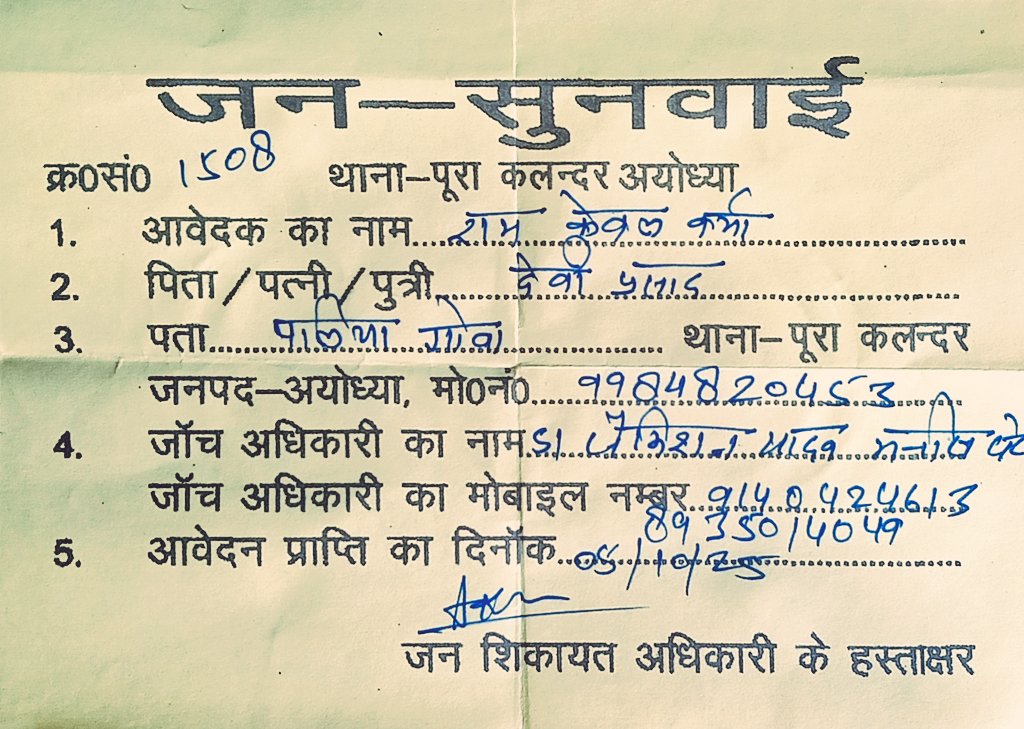 जन-सुनवाई
क्र0सं0 1508 थाना-पूरा कलन्दर अयोध्या
1. आवेदक का नाम राम केवल वर्मा
2. पिता/पत्नी/पुत्री देवी प्रसाद
3. पता पालिया गोवा थाना-पूरा कलन्दर
जनपद-अयोध्या, मो0नं0 9984820453
4. जॉच अधिकारी का नाम यादव
जॉच अधिकारी का मोबाइल नम्बर 9140424613
8935014049
5. आवेदन प्राप्ति का दिनॉक 05/10/25
जन शिकायत अधिकारी के हस्ताक्षर